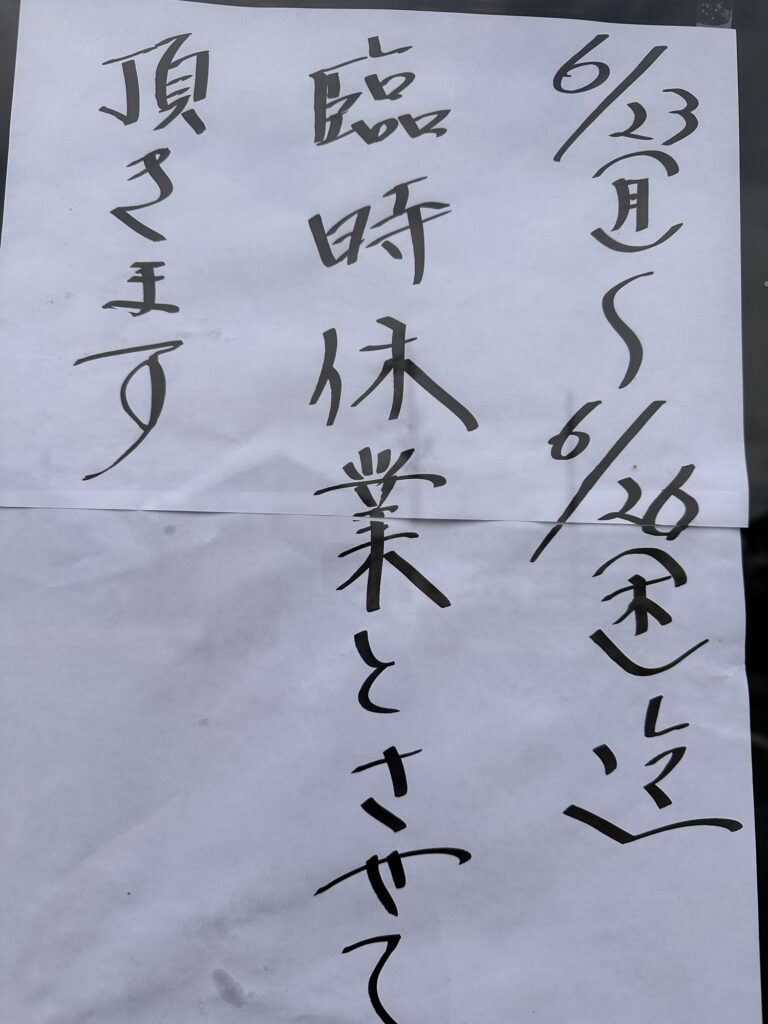 6/23(月)〜6/26(木)迄
臨時休業とさせて
頂きます